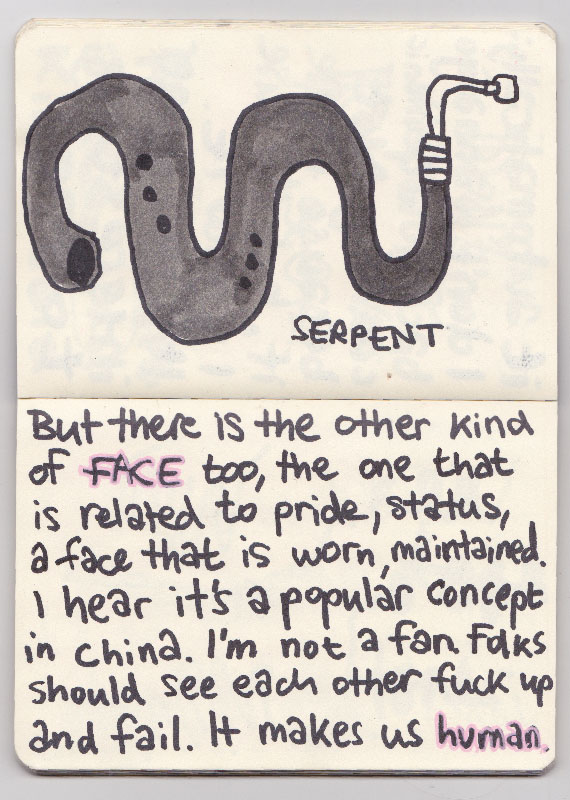 SERPENT
But there is the other kind
of FACE too, the one that
is related to pride, status,
a face that is worn, maintained.
I hear it's a popular concept
in china. I'm not a fan. Folks
should see each other fuck up
and fail. It makes us human.